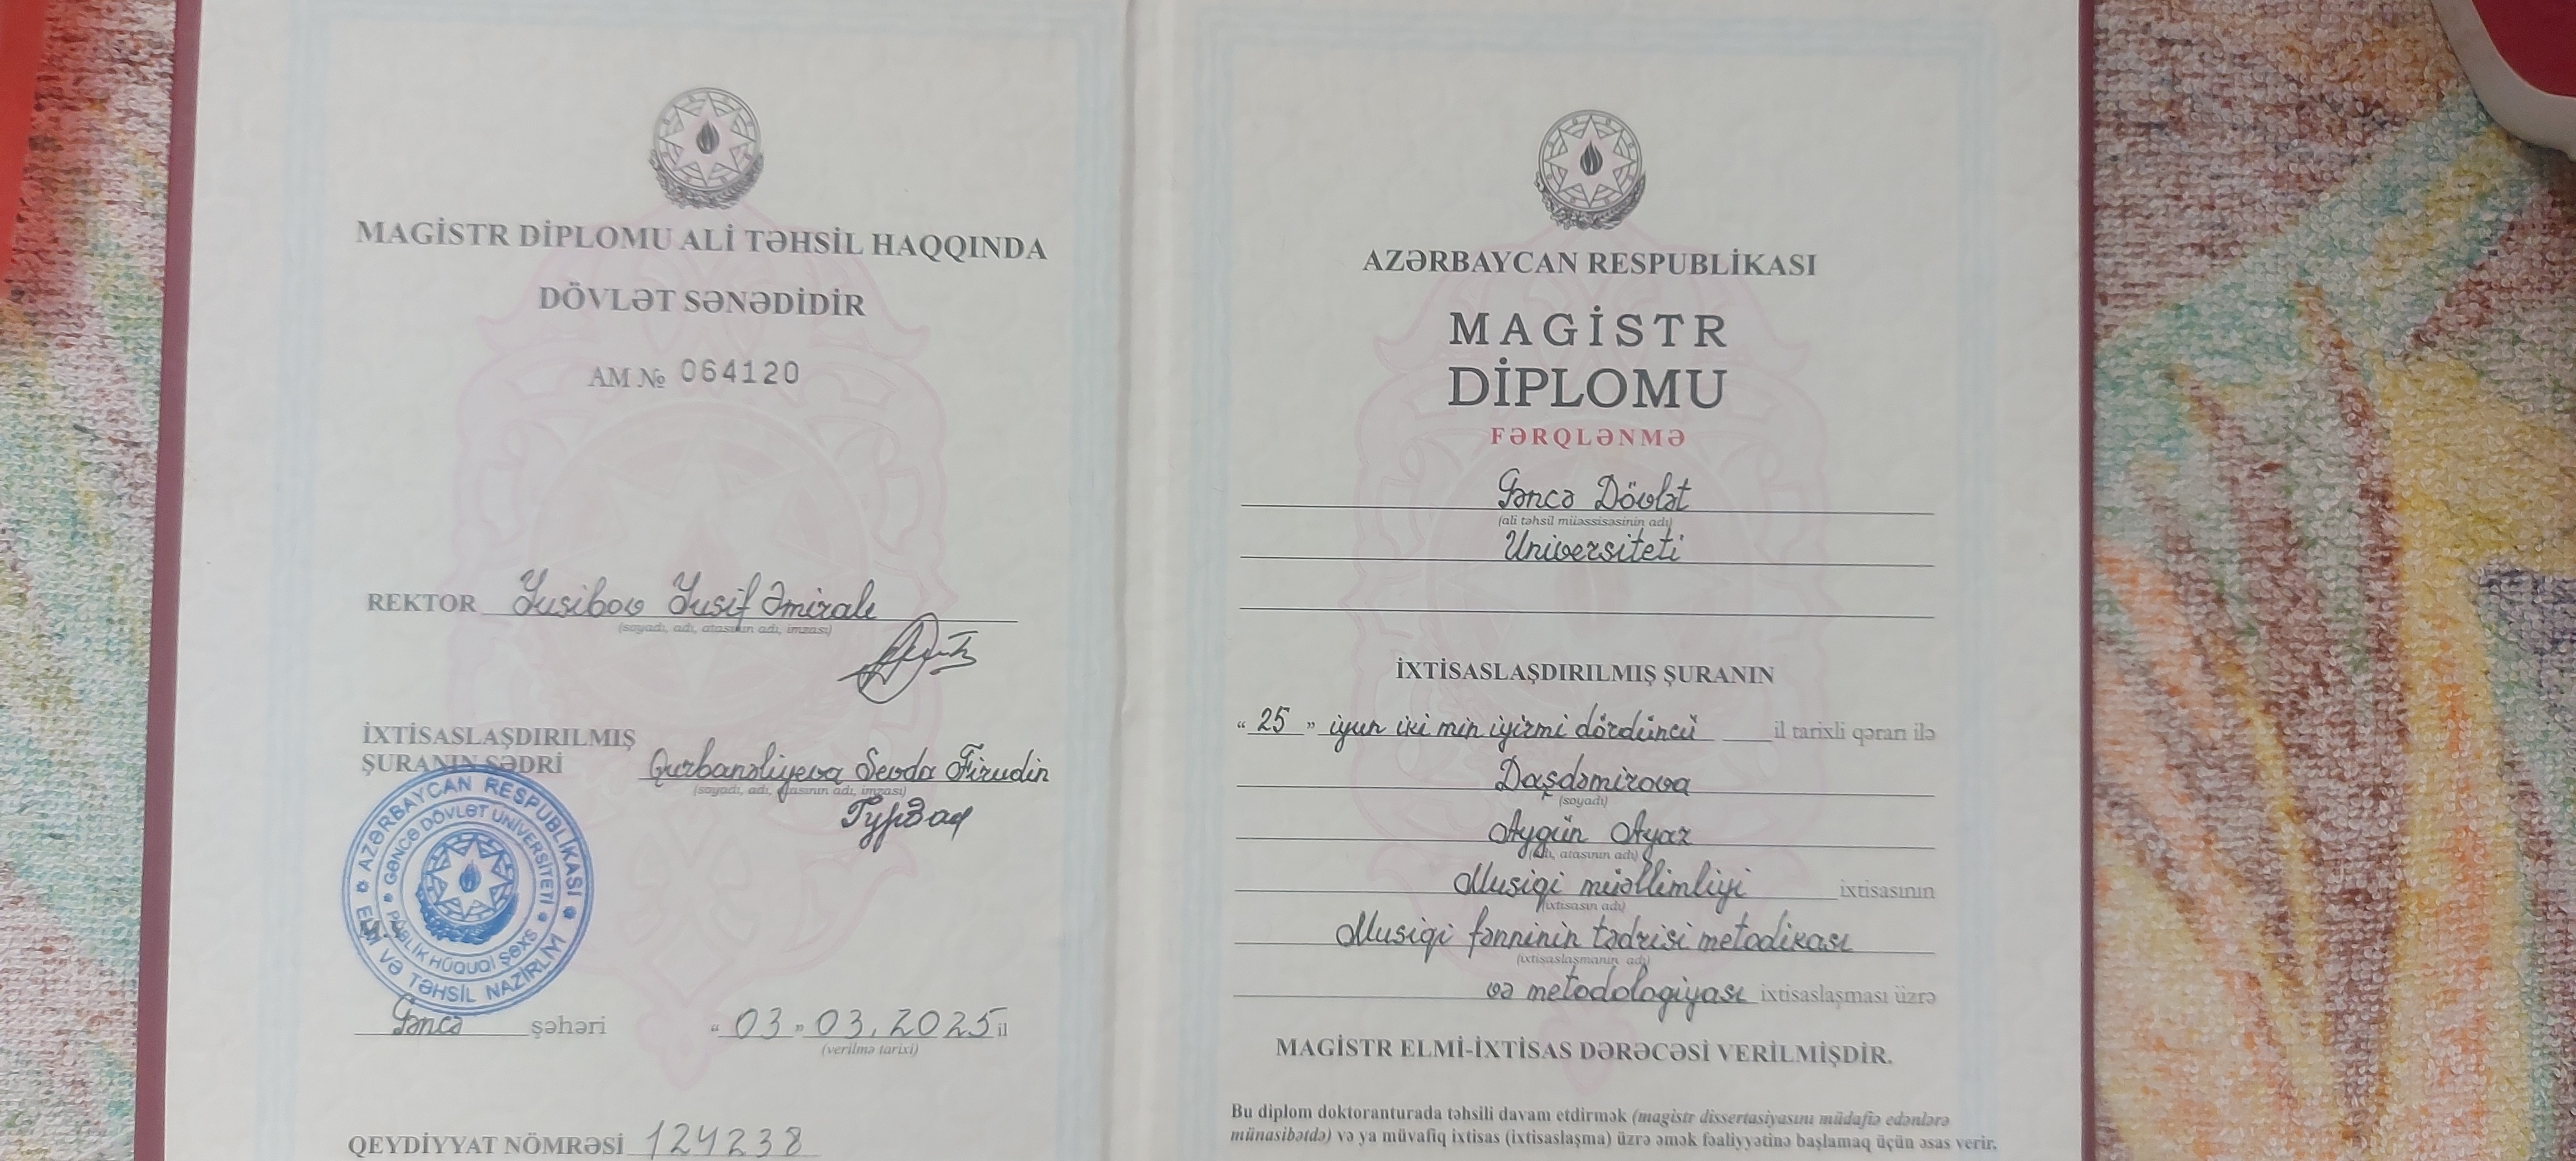 MAGİSTR DİPLOMU ALİ TƏHSİL HAQQINDA
DÖVLƏT SƏNƏDİDİR
AM № 064120
REKTOR Yusibov Yusif Əmiralı
(soyadı, adı, atasının adı, imzası)
İXTİSASLAŞDIRILMIŞ
ŞURANIN SƏDRİ Qurbanəliyeva Sevda Firudin
(soyadı, adı, atasının adı, imzası)
AZƏRBAYCAN RESPUBLİKASI
ELM VƏ TƏHSİL NAZİRLİYİ
GƏNCƏ DÖVLƏT UNİVERSİTETİ
PUBLİK HÜQUQİ ŞƏXS
M.Y.
Gəncə şəhəri “03” 03.2025 il
(verilmə tarixi)
QEYDİYYAT NÖMRƏSİ 124238
AZƏRBAYCAN RESPUBLİKASI
MAGİSTR
DİPLOMU
FƏRQLƏNMƏ
Gəncə Dövlət
(ali təhsil müəssisəsinin adı)
Universiteti
İXTİSASLAŞDIRILMIŞ ŞURANIN
“25” iyun iki min iyirmi dördüncü il tarixli qərarı ilə
Daşdəmirova
(soyadı)
Aygün Ayaz
(adı, atasının adı)
Musiqi müəllimliyi ixtisasının
(ixtisasın adı)
Musiqi fənninin tədrisi metodikası
(ixtisaslaşmanın adı)
və metodologiyası ixtisaslaşması üzrə
MAGİSTR ELMİ-İXTİSAS DƏRƏCƏSİ VERİLMİŞDİR.
Bu diplom doktoranturada təhsili davam etdirmək (magistr dissertasiyasını müdafiə edənlərə
münasibətdə) və ya müvafiq ixtisas (ixtisaslaşma) üzrə əmək fəaliyyətinə başlamaq üçün əsas verir.